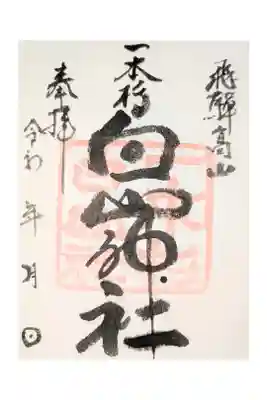 飛騨高山
一本杉
白山神社
奉拝
令和 年 月